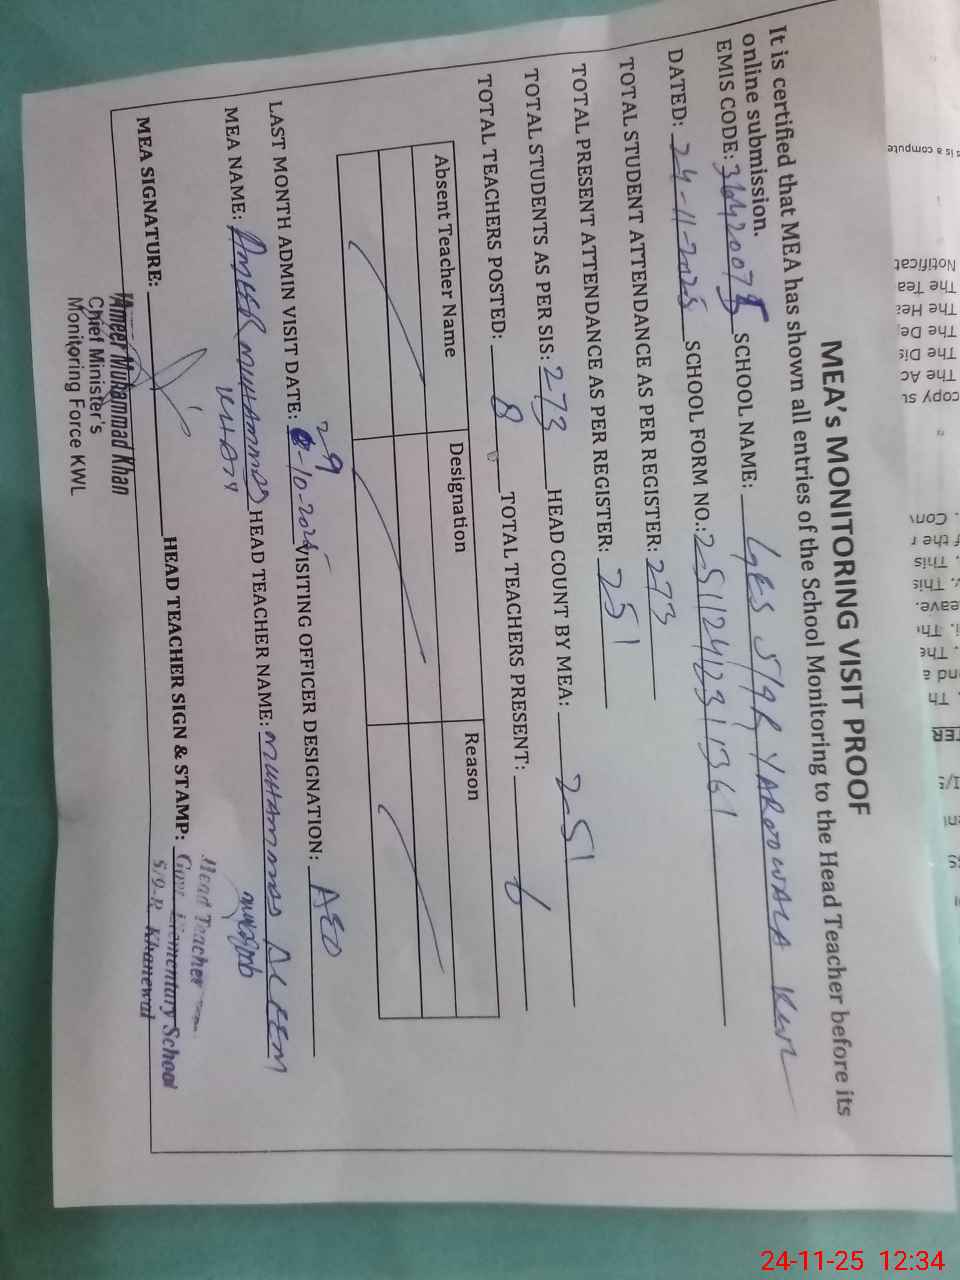 MEA's MONITORING VISIT PROOF
It is certified that MEA has shown all entries of the School Monitoring to the Head Teacher before its
online submission.
EMIS CODE: SCHOOL NAME: GES 5/9R YAROOWALA KWL
DATED: 24-11-2025 SCHOOL FORM NO.: 251124123 1361
TOTAL STUDENT ATTENDANCE AS PER REGISTER: 273
TOTAL PRESENT ATTENDANCE AS PER REGISTER: 251
TOTAL STUDENTS AS PER SIS: 273 HEAD COUNT BY MEA: 251
TOTAL TEACHERS POSTED: 8 TOTAL TEACHERS PRESENT:
Absent Teacher Name Designation Reason
LAST MONTH ADMIN VISIT DATE: 29-10-2025 VISITING OFFICER DESIGNATION: AEO
MEA NAME: AMEER MUHAMMAD KHAN HEAD TEACHER NAME: MUHAMMAD
MEA SIGNATURE: HEAD TEACHER SIGN & STAMP:
Ameer Muhammad Khan
Chief Minister's
Monitoring Force KWL
Head Teacher
Govt. Elementary School
5/9-R Khanewal
s is a compute
Notificat
The Tea
The Hea
The De
The Dis
The Ac
copy su
24-11-25 12:34